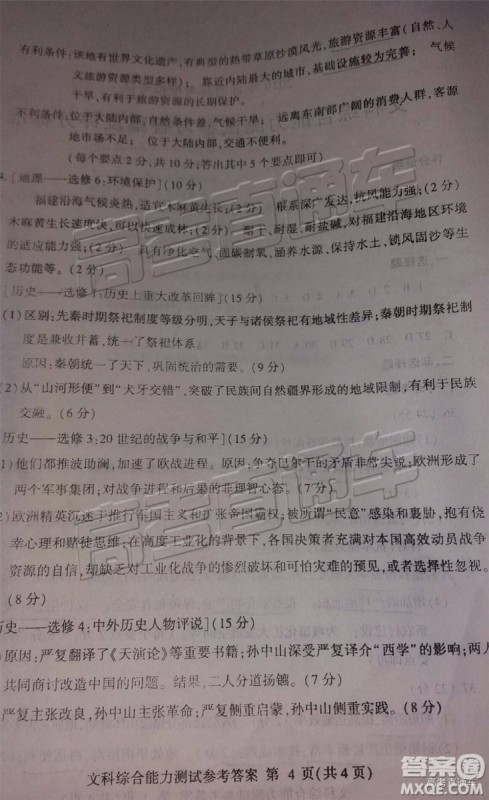 有利条件:该地有世界文化遗产,有典型的热带草原沙漠风光,旅游资源丰富(自然、人
文旅游资源类型多样); 靠近内陆最大的城市,基础设施较为完善; 气候
干旱,有利于旅游资源的长期保护。
不利条件:位于大陆内部,自然条件差,气候干旱; 远离东南部广阔的消费人群,客源
地市场不足; 位于大陆内部,交通不便利。
(每个要点2分,共10分;答出其中5个要点即可)
[地理——选修6:环境保护](10分)
福建沿海气候炎热,适宜木麻黄生长;(2分) 根系深广发达,抗风能力强;(2分)
木麻黄生长速度快,可以快速成林;(2分) 耐干、耐湿、耐盐碱,对福建沿海地区环境
的适应能力强;(2分) 有利净化空气,固碳制氧、涵养水源、保持水土、锁风固沙等生
态功能等。(2分)
[历史——选修1:历史上重大改革回眸](15分)
(1)区别:先秦时期祭祀制度等级分明,天子与诸侯祭祀有地域性差异;秦朝时期祭祀制
度是兼收并蓄,统一了祭祀体系
原因:秦朝统一了天下,巩固统治的需要。(9分)
(2)从“山河形便”到“犬牙交错”,突破了民族间自然疆界形成的地域限制,有利于民族
交融。(6分)
历史——选修3:20世纪的战争与和平](15分)
1)他们都推波助澜,加速了欧战进程。原因:争夺巴尔干的矛盾非常尖锐;欧洲形成了
两个军事集团;对战争进程和后果的非理智心态。(7分)
2)欧洲精英沉迷于推行帝国主义和扩张帝国霸权;被所谓“民意”感染和裹胁,抱有侥
幸心理和赌徒思维;在高度工业化的背景下,各国决策者充满对本国高效动员战争
资源的自信,却缺乏对工业化战争的惨烈破坏和不可预知性的预见,或者选择性忽视。
(8分)
历史——选修4:中外历史人物评说](15分)
)原因:严复翻译了《天演论》等重要书籍;孙中山深受严复译介“西学”的影响;两人
共同商讨改造中国的问题。结果,二人分道扬镳。(7分)
严复主张改良,孙中山主张革命;严复侧重启蒙,孙中山侧重实践。(8分)
文科综合能力测试参考答案 第 4 页(共4页)
高考直通车
答案圈